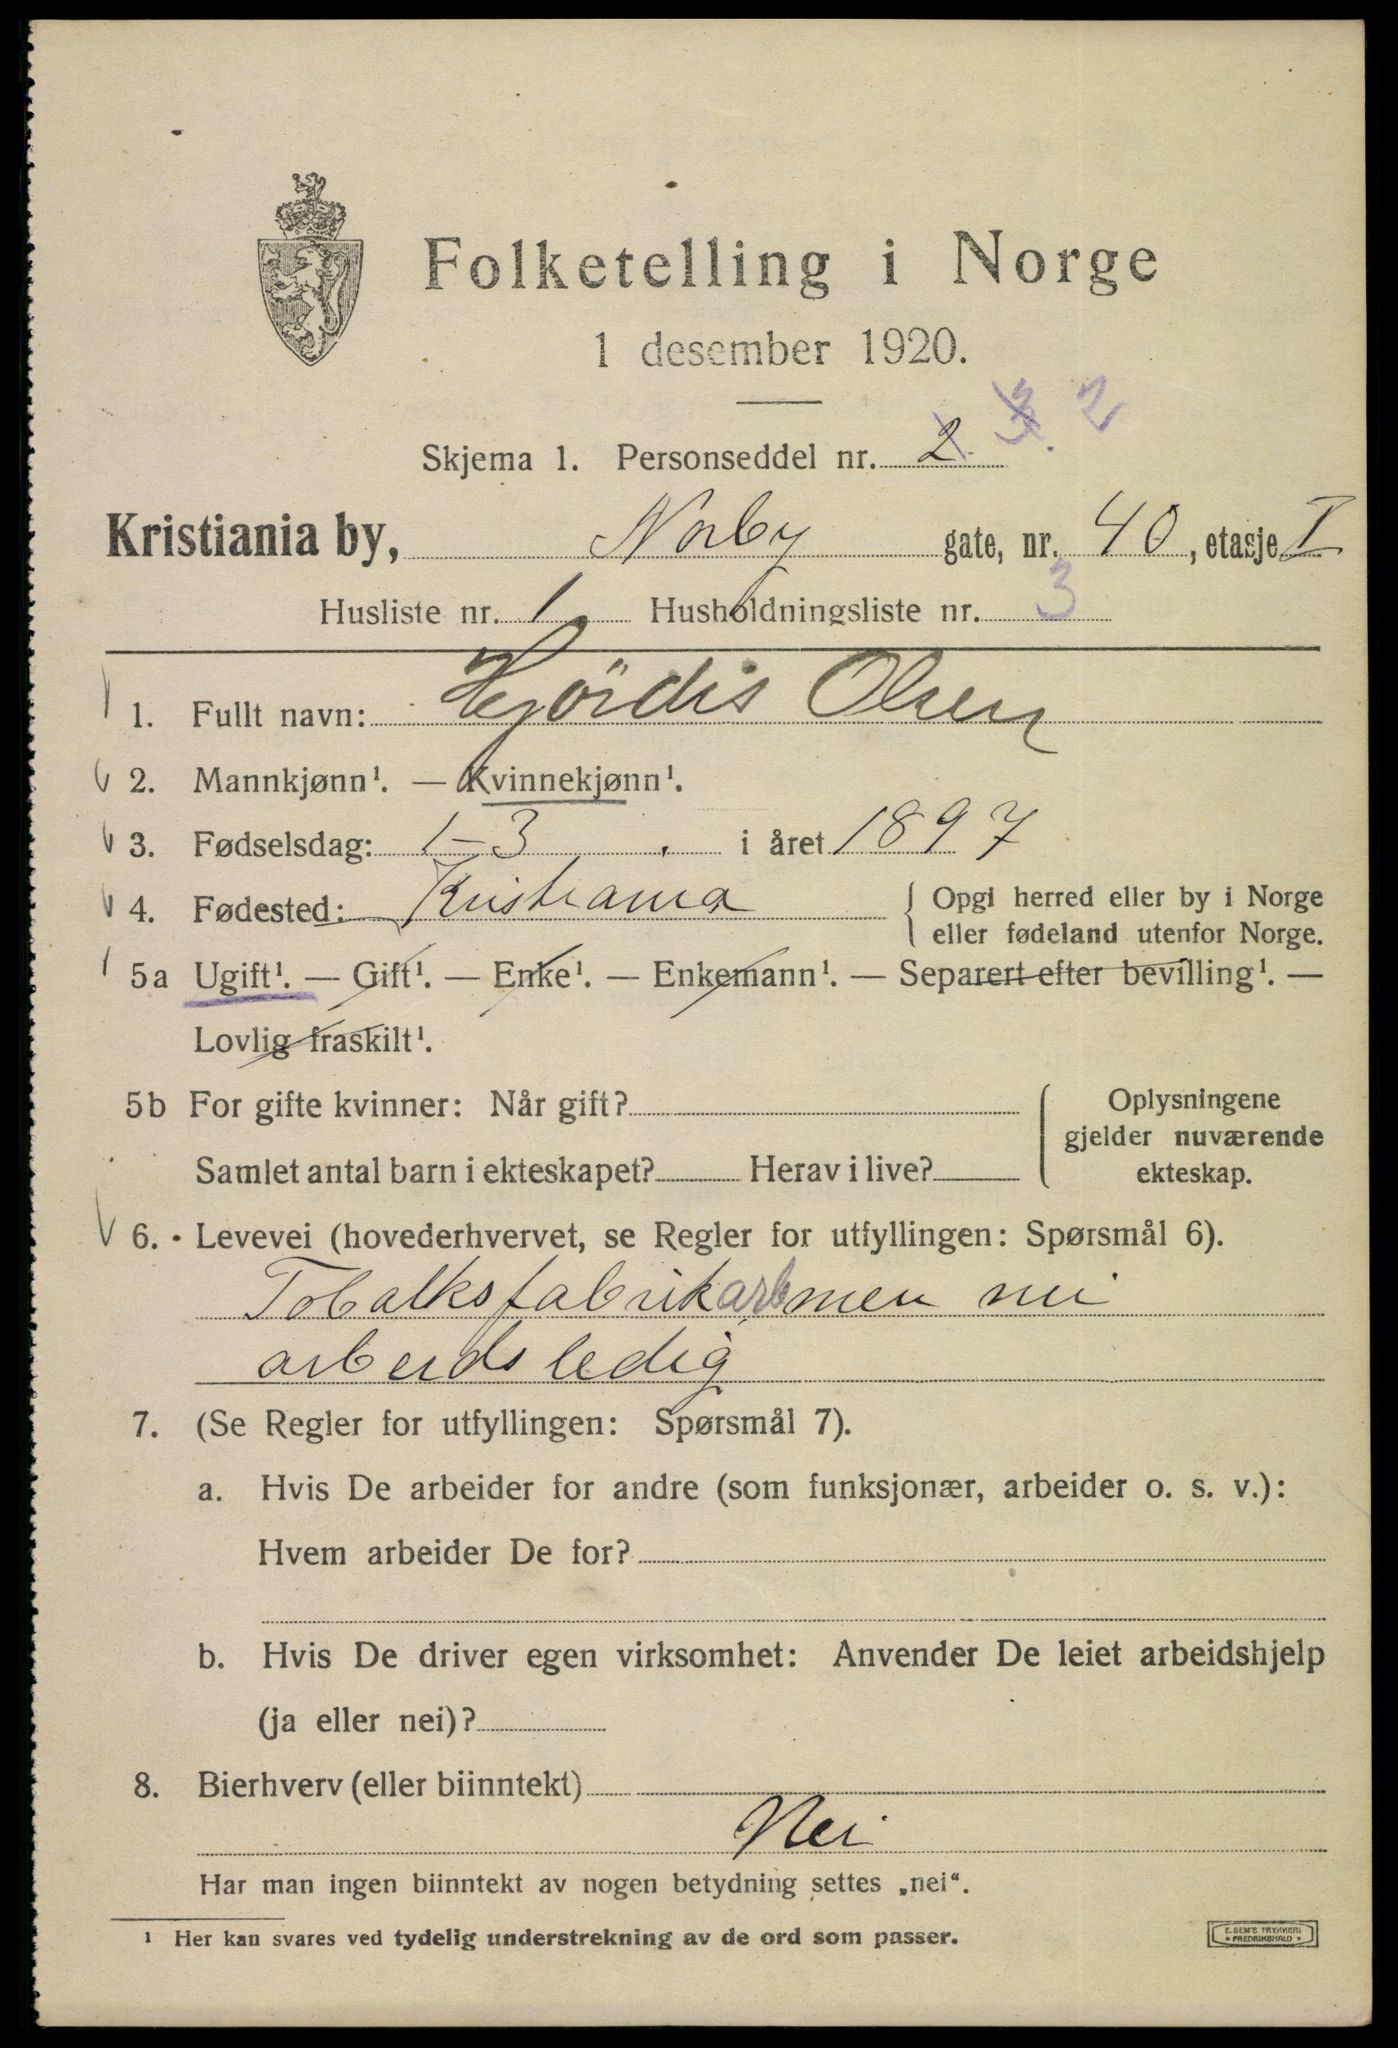 Folketelling i Norge
1 desember 1920.
Skjema 1. Personseddel nr. 2 3. 2
Kristiania by, Norby gate, nr. 40, etasje I
Husliste nr. 1 Husholdningsliste nr. 3
1. Fullt navn: Hjördis Olsen
2. Mannkjønn¹. — Kvinnekjønn¹.
3. Fødselsdag: 1-3 . i året 1897
4. Fødested: Kristiania { Opgi herred eller by i Norge
eller fødeland utenfor Norge.
5a Ugift¹. — Gift¹. — Enke¹. — Enkemann¹. — Separert efter bevilling¹. —
Lovlig fraskilt¹.
5b For gifte kvinner: Når gift? ( Oplysningene
gjelder nuværende
Samlet antal barn i ekteskapet? Herav i live? ekteskap.
6. Levevei (hovederhvervet, se Regler for utfyllingen: Spørsmål 6).
Tobakksfabrikarb men nu
arbeidsledig
7. (Se Regler for utfyllingen: Spørsmål 7).
a. Hvis De arbeider for andre (som funksjonær, arbeider o. s. v.):
Hvem arbeider De for?
b. Hvis De driver egen virksomhet: Anvender De leiet arbeidshjelp
(ja eller nei)?
8. Bierhverv (eller biinntekt)
Nei
Har man ingen biinntekt av nogen betydning settes „nei“.
¹ Her kan svares ved tydelig understrekning av de ord som passer.
E. SEM'S TRYKKERI
FREDRIKSHALD